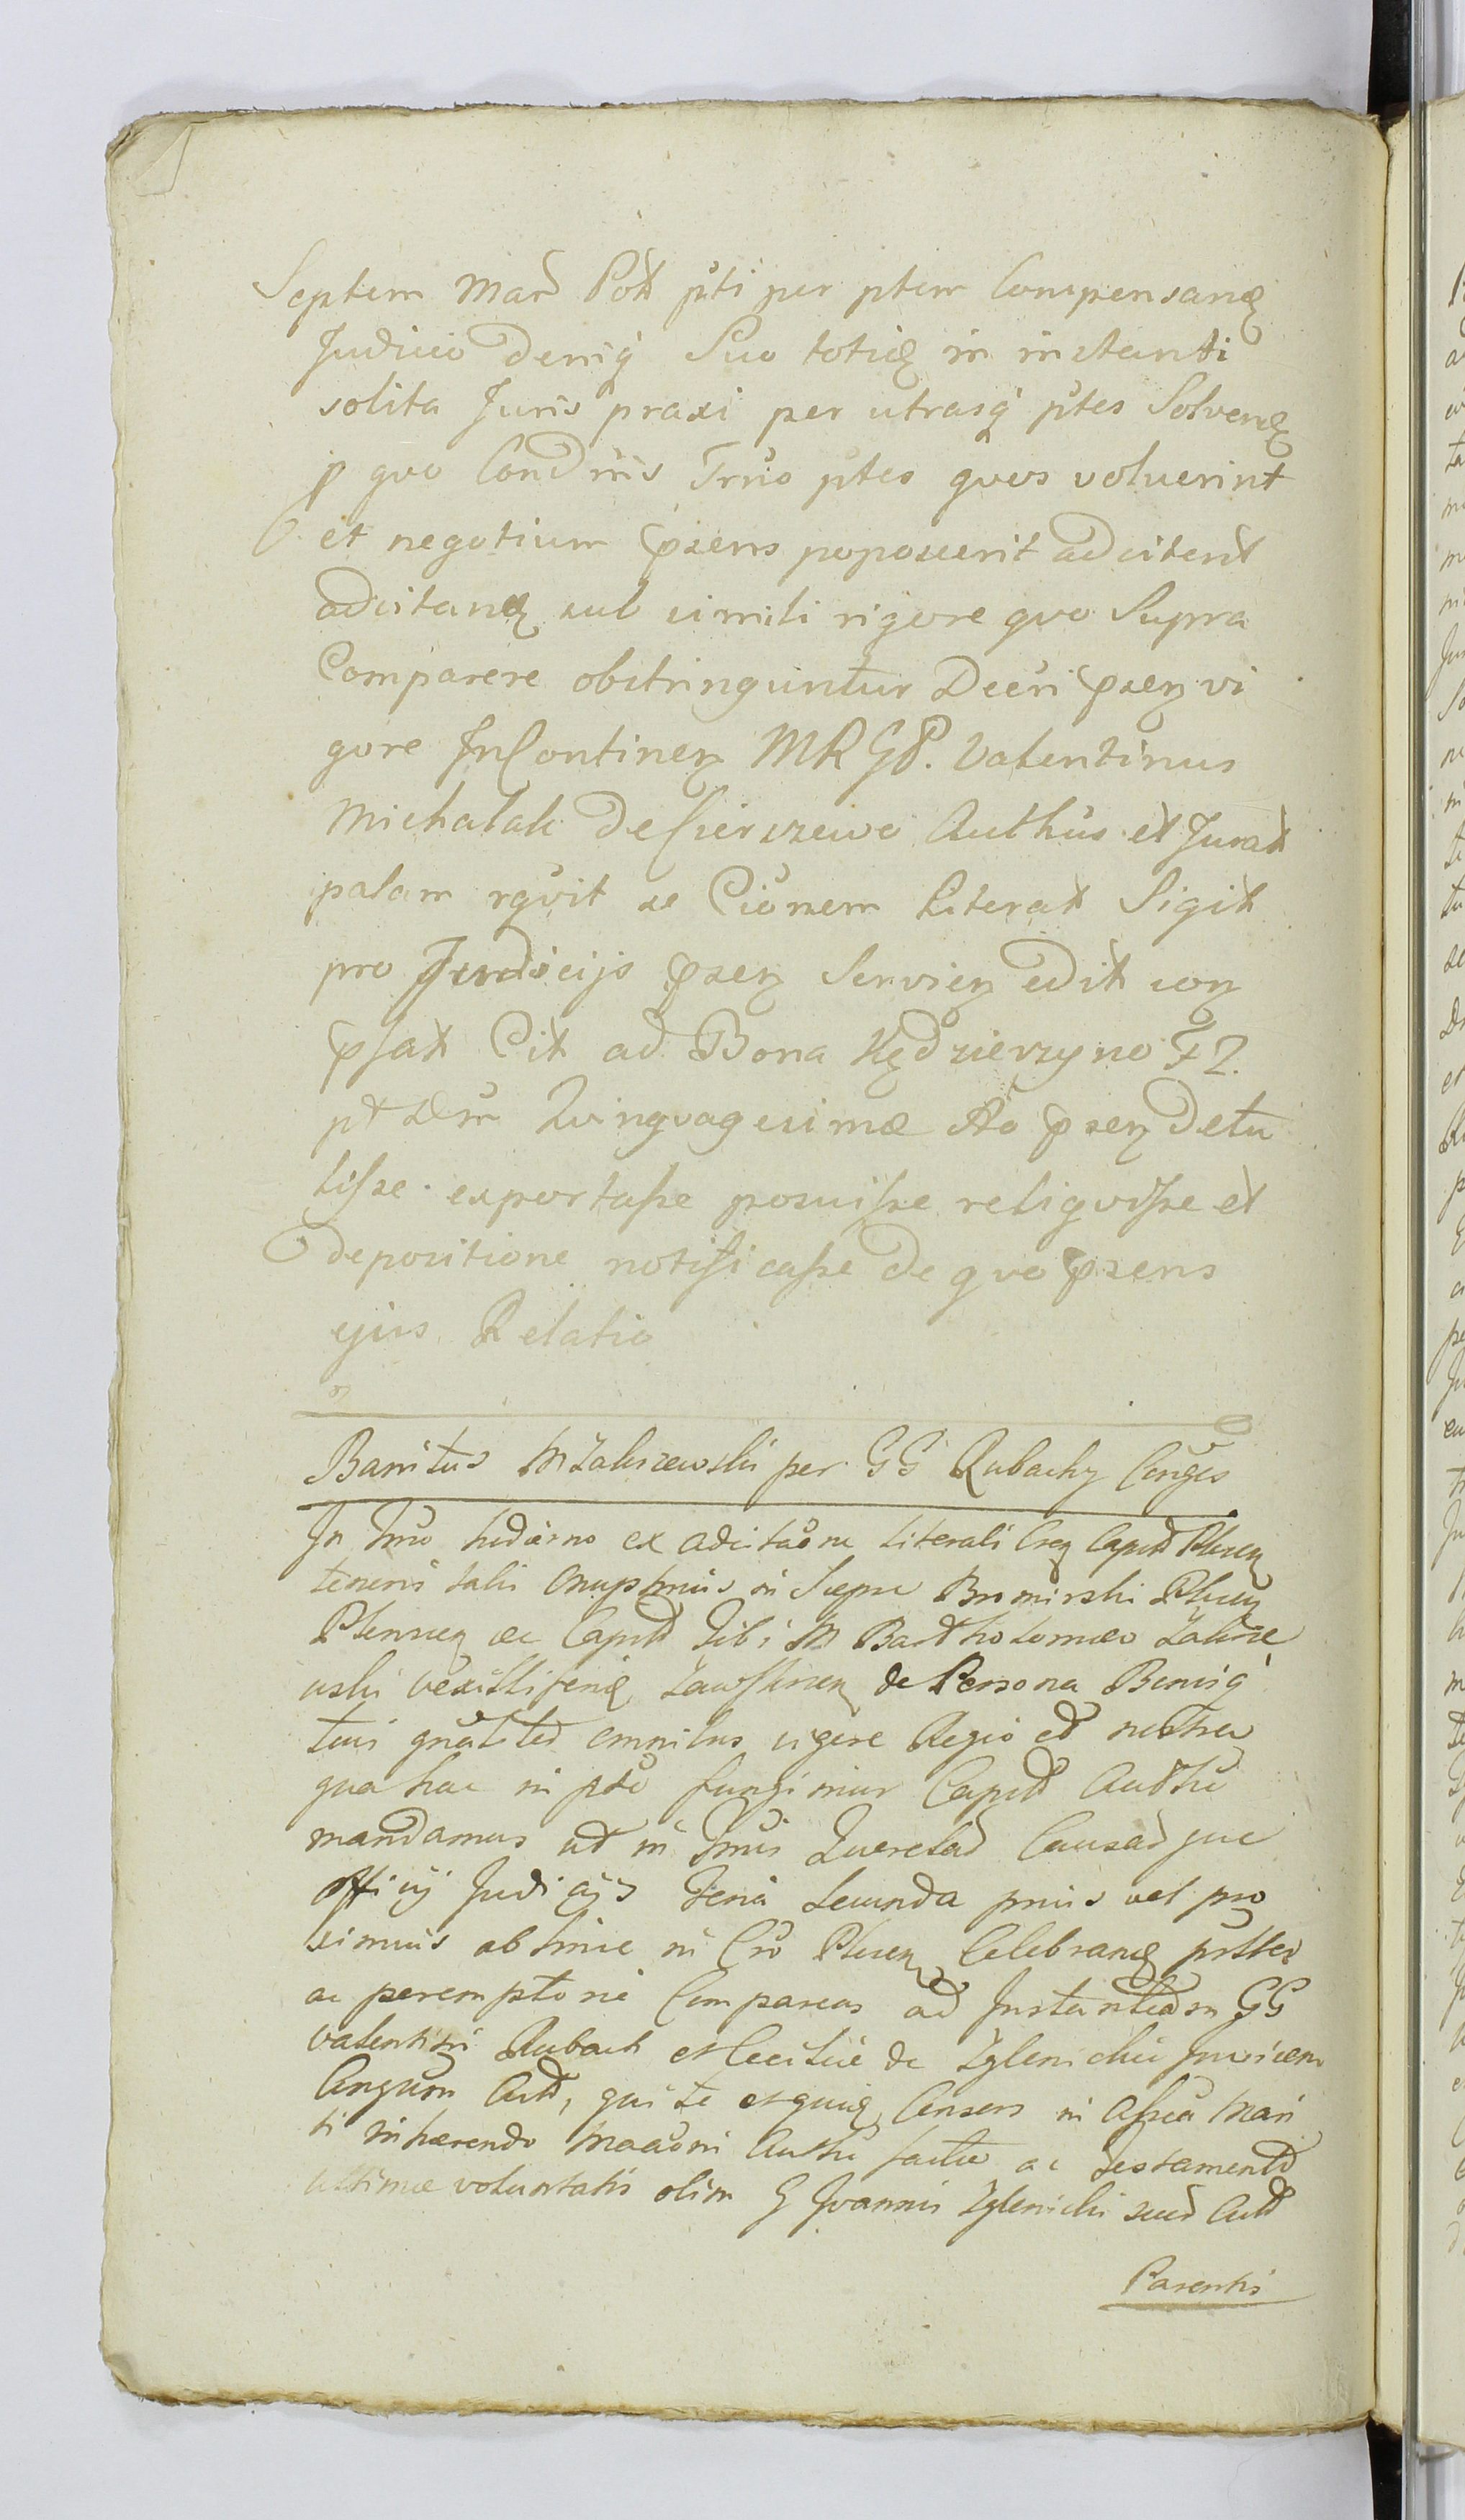 Septem Mar Pot pti per ptem Compensanđ
Judicio deniq Suo totiq in instanti
solita Juris praxi per utrasq ptes Solvenđ
p quo Condnis Trno ptes quos voluerint
et negotium psens poposcerit adcitent
adcitanđ sub simili rigore quo Supra
Comparere obstringuntur Decri psen vi
gore InContinen MRGP. Valentinus
Michalak de Sierszewo Authus et Jurat
palam rgvit se Cionem Literat Sigit
pro Judicijs psen Servien edit con
psat Cit ad Bona Kędzierzyno F 2.
pt Dm Quinquagesimæ Ao psen detu
lisse exportasse posuisse religvisse et
depositione notificasse de quo psens
ejus Relatio
Banitus M Zakrzewski per GG Rubachy Conges
In Trno hodierno ex adcitaone literali Cen Capit Plocen
tenoris talis Onuphrius in Siepre Bromirski Plocen
Plonscen ac Capit Tibi M Bartholomæo Zakrze
wski Vexillifero Zawskrzen de Persona Bonisq
tuis gnalit omnibus vigore Regio et nostra
qua hac in pte fungimur Capit Authe
mandamus ut in Trnis Querelar Causar que
Officij Judicijs Feria Secunda prius vel pro
ximius abhinc in Cro Plocen Celebranđ prlter
ac peremptorie Compareas ad Instantiam GG
Valentini Rubach et Ceciliæ de Zglenickie Invicem
Congum Act, qui te et quiq Consors in Assia Mari
ti inhærendo Maaoni Authe factæ ac Testamento
ultimæ voluntatis olim G Joannis Zglenicki sui Act
Parentis